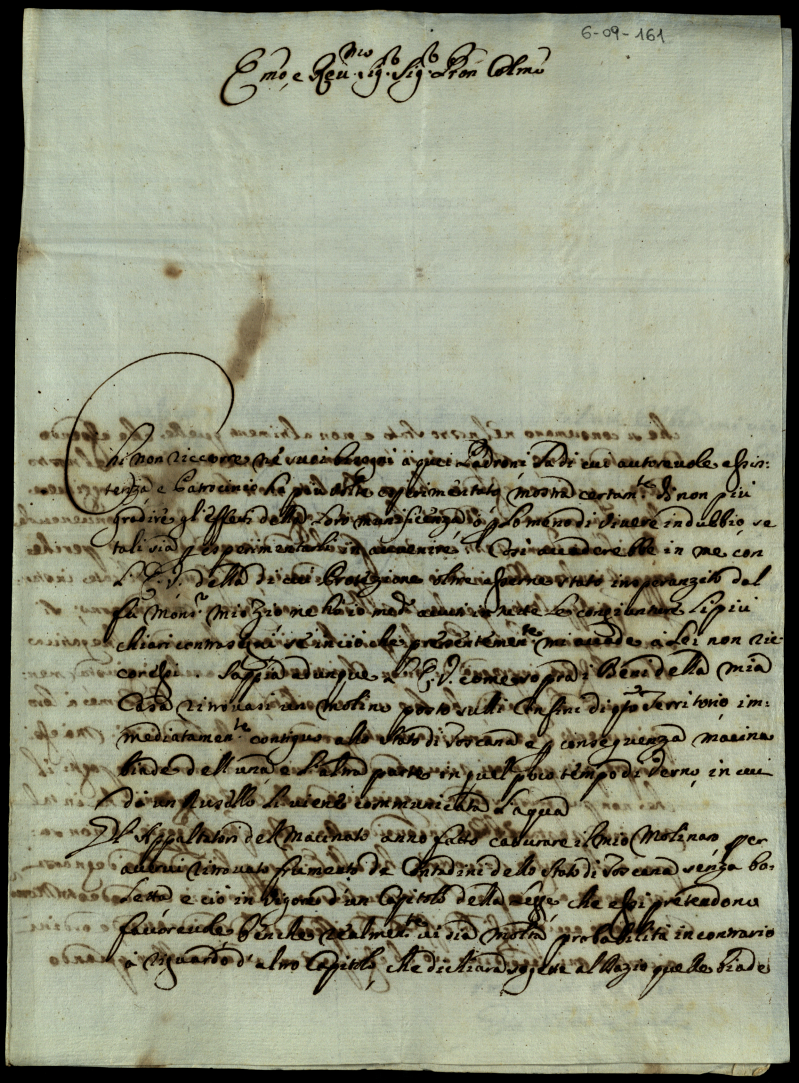 6-09-161
Emo, e Reu.mo Sig.r Sig.r Pron Colmo
Chi non riccorre ne suoi bisogni à quei Padroni la di cui autoreuole assis-
tenza e Patrocinio hà più volte esperimentato, mostra certam.te di non più
gradire gl'effetti della Loro munificenza, ò p lo meno di viuere in dubbio, se
tali sia p esperimentarli in auuenire. Così accaderebbe in me con
L'E. V. della di cui Protezione oltre esserne stato
fù Monsr. mio Zio ne hò io med.o le congiunture li più
chiari contrasegni, se in ciò che presentemen.te mi accade à Lei non ric-
coressi. Sappia adunque L'E. V. come sopra i Beni della mia
Casa ritrouasi un Molino posto sulli Confini di qsto Territorio, im-
mediatamen.te contiguo allo Stato di Toscana e p conseguenza macina
biade dell'una, e l'altra parte in quel poco tempo di Verno, in cui
da un Rusello li vienti communicata l'aqua.
Gl'Appaltatori del Macinato anno fatto catturare il mio Molinaro per
auerui ritrouato frumento di Contadini dello Stato di Toscana senza bo-
letta e ciò in vigore d'un Capitolo della Legge che essi pretendono
fauoreuole, benche realmen.te vi sia molta probabilità in contrario
à riguardo d'altro Capitolo, che dichiara sogette al Dazio quelle biade